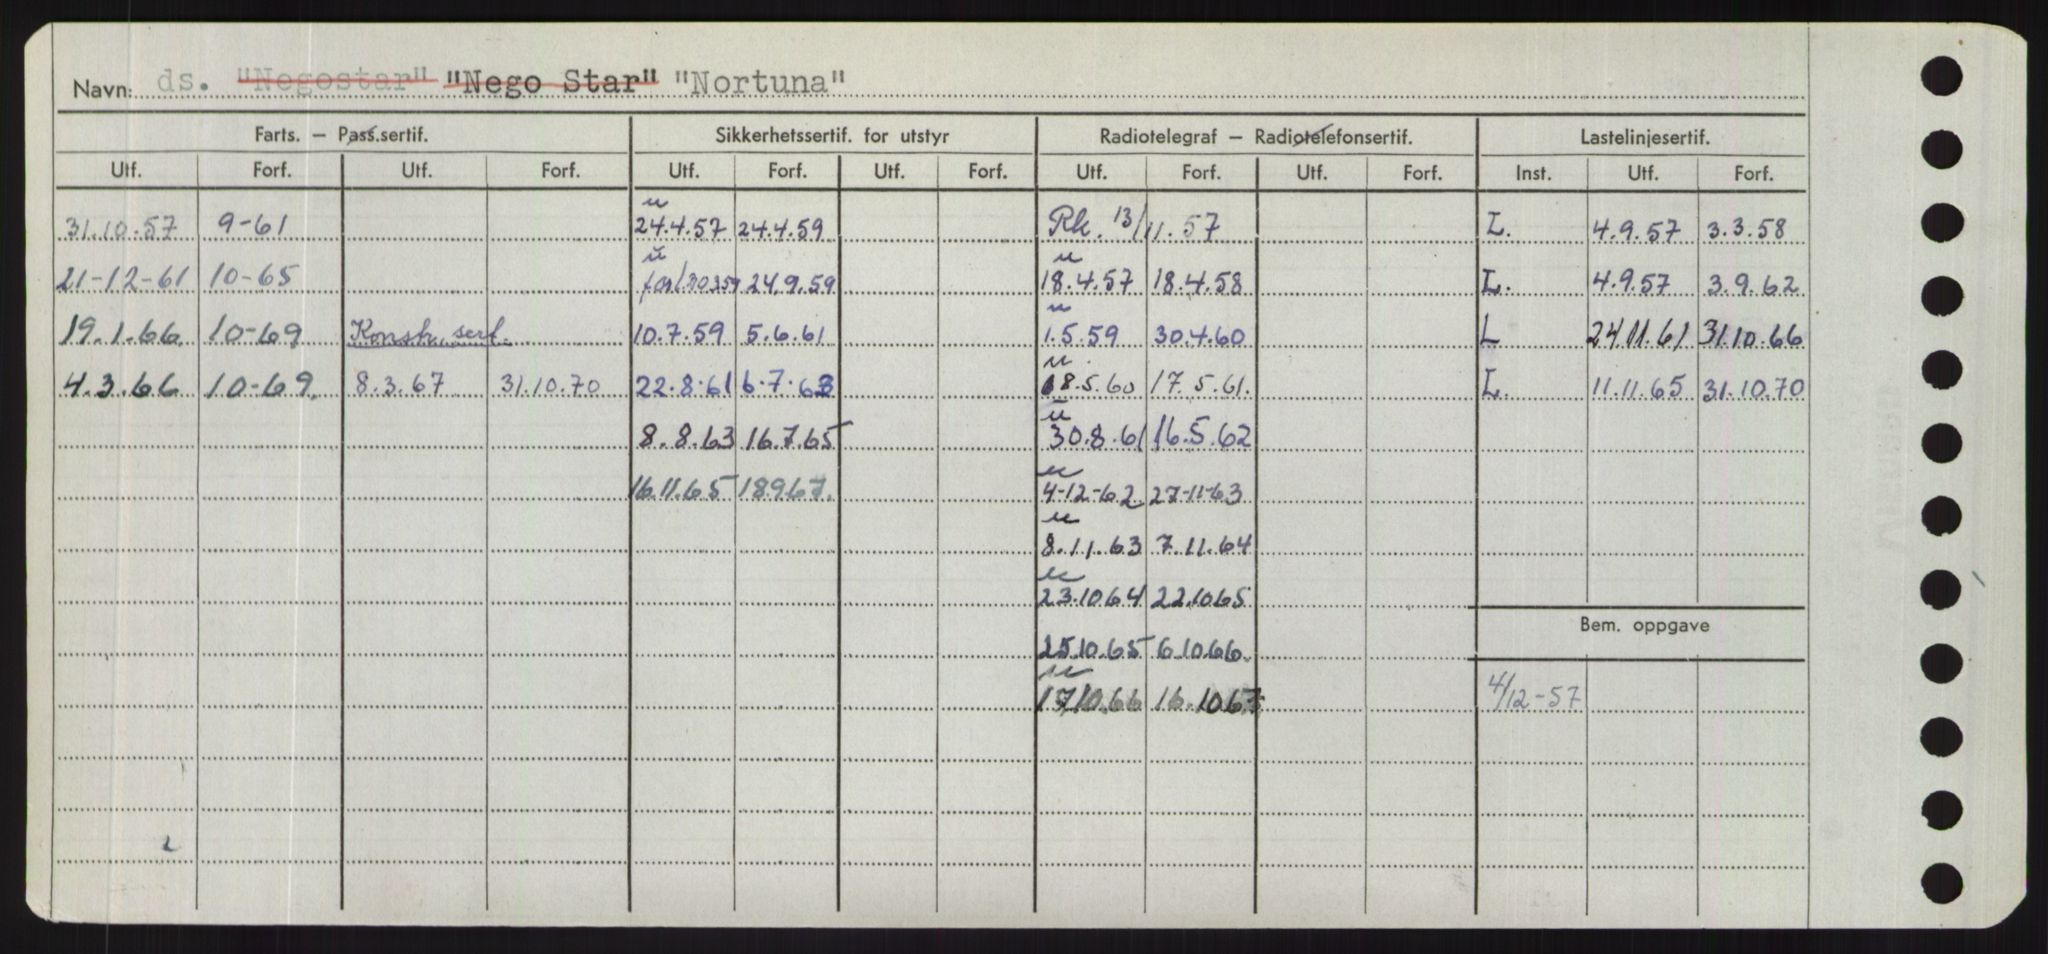 Navn: ds. "Negostar" "Nego Star" "Nortuna"
Farts. – Pass.sertif. Sikkerhetssertif. for utstyr Radiotelegraf – Radiotelefonsertif. Lastelinjesertif.
Utf. Forf. Utf. Forf. Utf. Forf. Utf. Forf. Utf. Forf. Utf. Forf. Inst. Utf. Forf.
u
31.10.57 9-61 24.4.57 24.4.59 Rk. 13/11.57 L. 4.9.57 3.3.58
u u
21-12-61 10-65 24.9.59 18.4.57 18.4.58 L. 4.9.57 3.9.62
u
19.1.66 10-69 Konstr. sert. 10.7.59 5.6.61 1.5.59 30.4.60 L 24.11.61 31.10.66
u
4.3.66 10-69. 8.3.67 31.10.70 22.8.61 6.7.63 18.5.60 17.5.61. L. 11.11.65 31.10.70
u
8.8.63 16.7.65 30.8.61 16.5.62
u
16.11.65 18.9.67. 4-12-62 27-11-63
u
8.11.63 7.11.64
u
23.10.64 22.10.65
Bem. oppgave
25.10.65 6.10.66
u
17.10.66 16.10.67 4/12-57